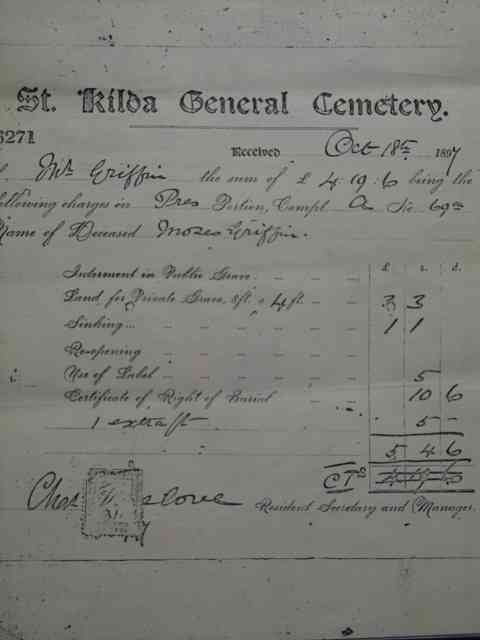 St. Kilda General Cemetery.
6271
Received Oct 18th 1897
Mrs Griffin the sum of £ 4.19.6 being the
following charges in Pres Portion, Compt A No 69a
Name of Deceased Moses Griffin.
£ s. d.
Interment in Public Grave
Land for Private Grave, 8 ft. x 4 ft. 3 3
Sinking 1 1
Re-opening
Use of Label 5
Certificate of Right of Burial 10 6
1 extra ft 5 -
5 4 6
Chas
Resident Secretary and Manager.